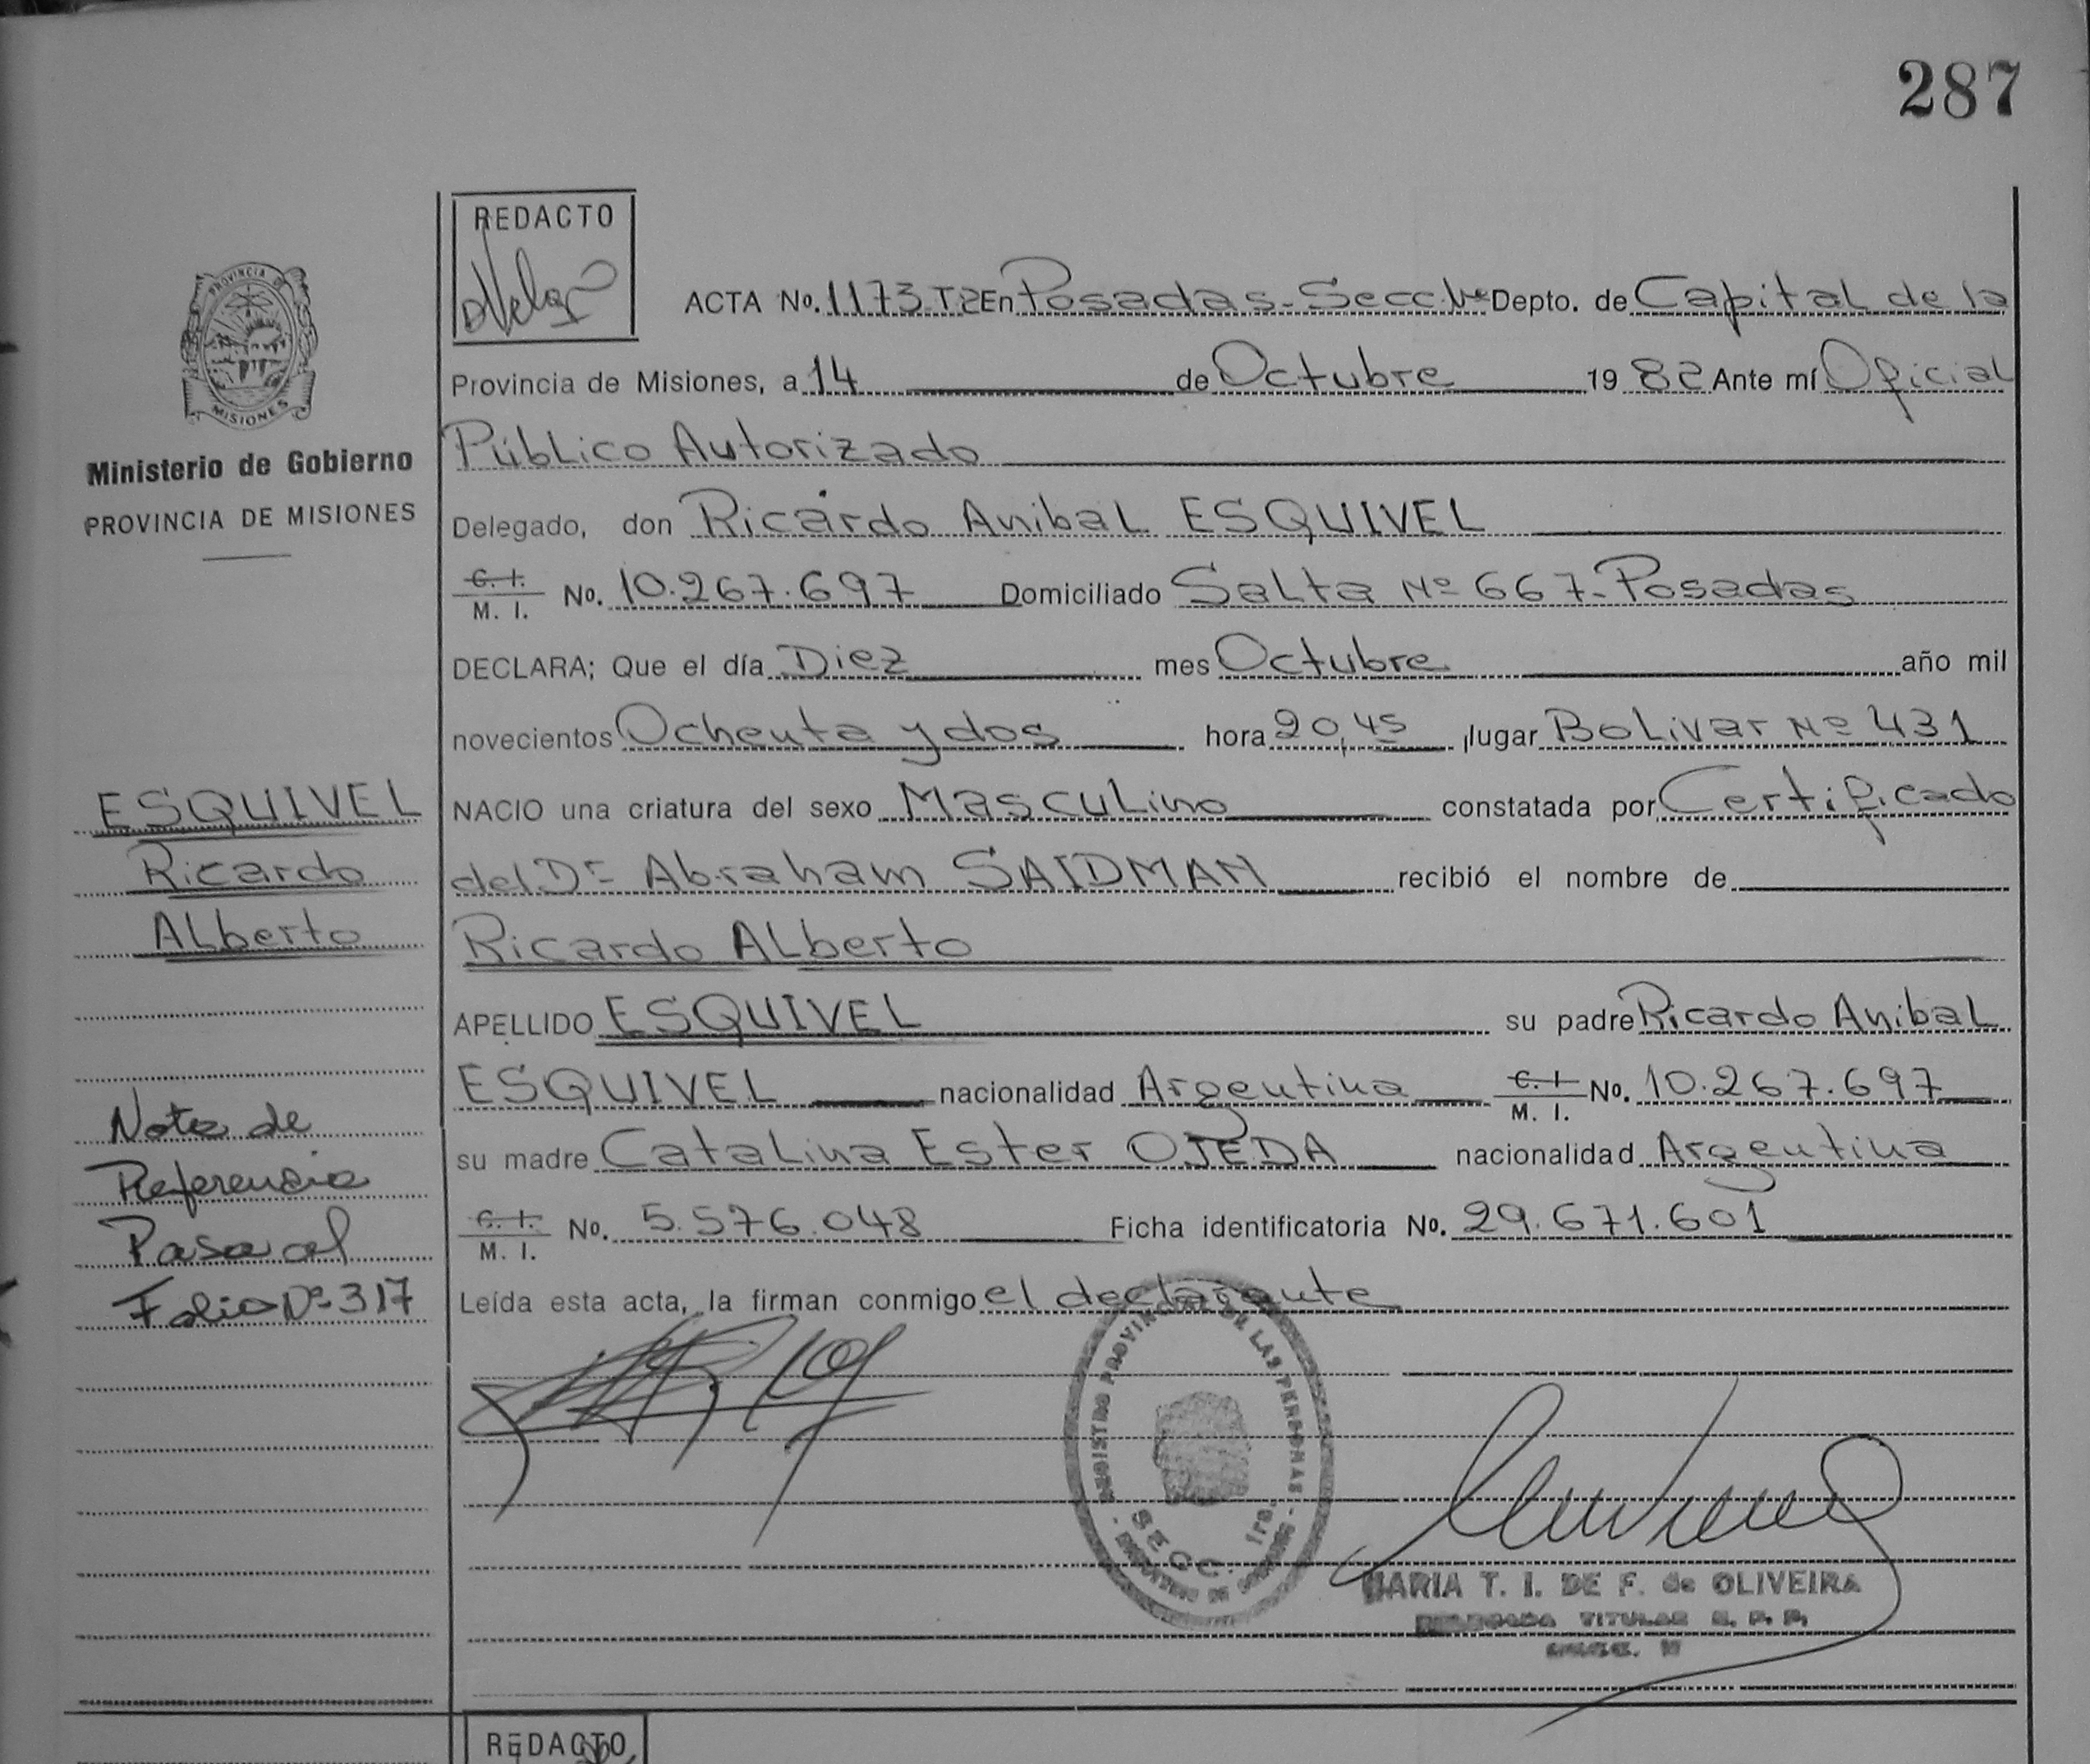 287
REDACTO
PROVINCIA DE
MISIONES
Ministerio de Gobierno
PROVINCIA DE MISIONES
ACTA No. 1173.T2 En Posadas-Secc.1ª Depto. de Capital de la
Provincia de Misiones, a 14 de Octubre 19 82 Ante mí Oficial
Público Autorizado
Delegado, don Ricardo Anibal ESQUIVEL
C. I. M. I. No. 10.267.697 Domiciliado Salta Nº 667-Posadas
DECLARA; Que el día Diez mes Octubre año mil
novecientos Ochenta y dos hora 20,45 lugar Bolivar Nº 431
NACIO una criatura del sexo Masculino constatada por Certificado
del Dr Abraham SAIDMAN recibió el nombre de
Ricardo Alberto
APELLIDO ESQUIVEL su padre Ricardo Anibal
ESQUIVEL nacionalidad Argentina C. I. M. I. No. 10.267.697
su madre Catalina Ester OJEDA nacionalidad Argentina
C. I. M. I. No. 5.576.048 Ficha identificatoria No. 29.671.601
Leída esta acta, la firman conmigo el declarante
ESQUIVEL
Ricardo
Alberto
Nota de
Referencia
Pasa al
Folio Nº 317
REGISTRO PROVINCIAL DE LAS PERSONAS
SECC. 1ra.
MARIA T. I. DE F. de OLIVEIRA
DELEGADA TITULAR R. P. P.
REDACTO